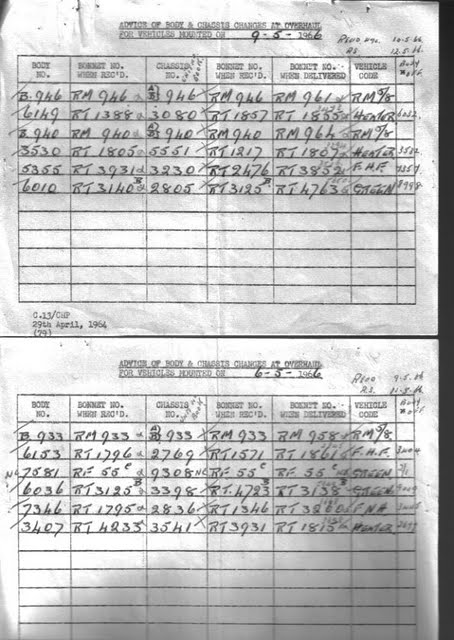 ADVICE OF BODY & CHASSIS CHANGES AT OVERHAUL
FOR VEHICLES MOUNTED ON 9-5-1966
10.5.66
R.S. 12.5.66
BODY NO. BONNET NO. WHEN REC'D. CHASSIS NO. BONNET NO. WHEN REC'D. BONNET NO. WHEN DELIVERED VEHICLE CODE Body
B.946 RM 946 A/B 946 RM 946 RM 961 RM 5/8
6149 RT 1388 3080 RT 1857 RT 1855 HEATER
B.940 RM 940 A/B 940 RM 940 RM 964 RM 5/8
3530 RT 1805 5551 RT 1217 RT 1807 HEATER
5355 RT 3931 3230 RT 2476 RT 3852 F.H.F. 7357
6010 RT 3140 B 2805 RT 3125 B RT 4763 GREEN
C.13/CHF
29th April, 1964
(79)
ADVICE OF BODY & CHASSIS CHANGES AT OVERHAUL
FOR VEHICLES MOUNTED ON 6-5-1966
9.5.66
R.S. 11.5.66
BODY NO. BONNET NO. WHEN REC'D. CHASSIS NO. BONNET NO. WHEN REC'D. BONNET NO. WHEN DELIVERED VEHICLE CODE Body
B 933 RM 933 A/B 933 RM 933 RM 958 RM 5/8
6153 RT 1796 2769 RT 1571 RT 1861 F.H.F.
NC 7581 RF 55 C 9308 NC RF 55 C RF 55 C GREEN
6036 RT 3125 B 3398 RT 4723 RT 3138 B GREEN
7346 RT 1795 2836 RT 1346 RT 3260 F.N.A
3407 RT 4233 3541 RT 3931 RT 1815 HEATER